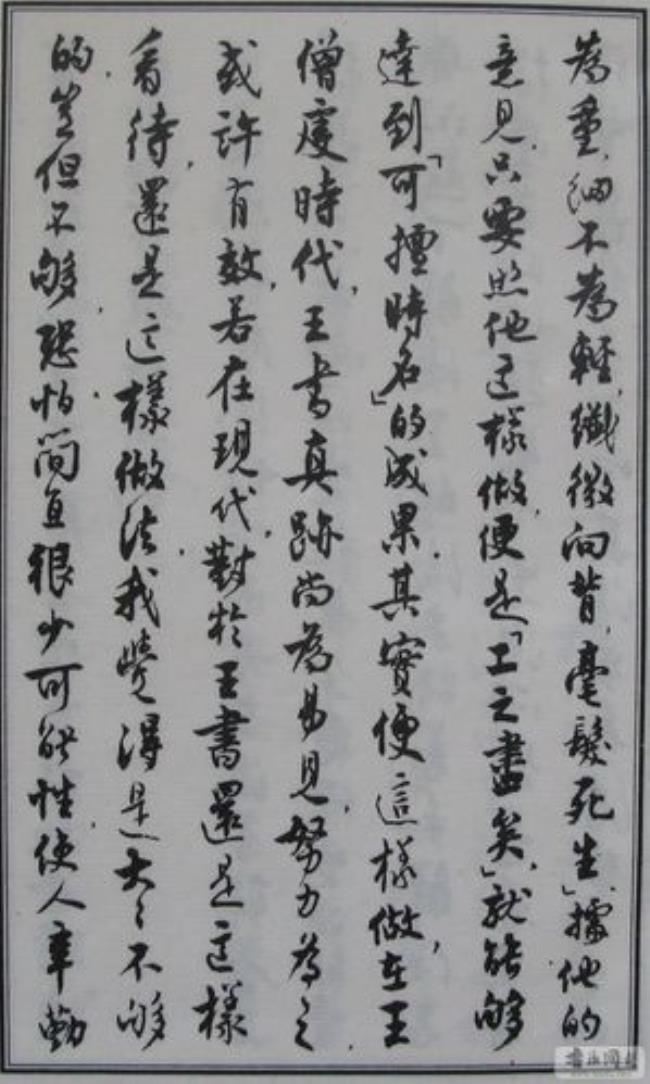 為重,細不為輕,纖微向背,毫髮死生」據他的
意見,只要照他這樣做,便是「工之盡矣」,就能夠
達到「可擅時名」的成果.其實便這樣做,在王
僧虔時代,王書真跡尚為易見,努力為之,
或許有效,若在現代,對於王書還是這樣
看待,還是這樣做法,我覺得是大々不够
的,豈但不够,恐怕簡直很少可能性,使人辛勤